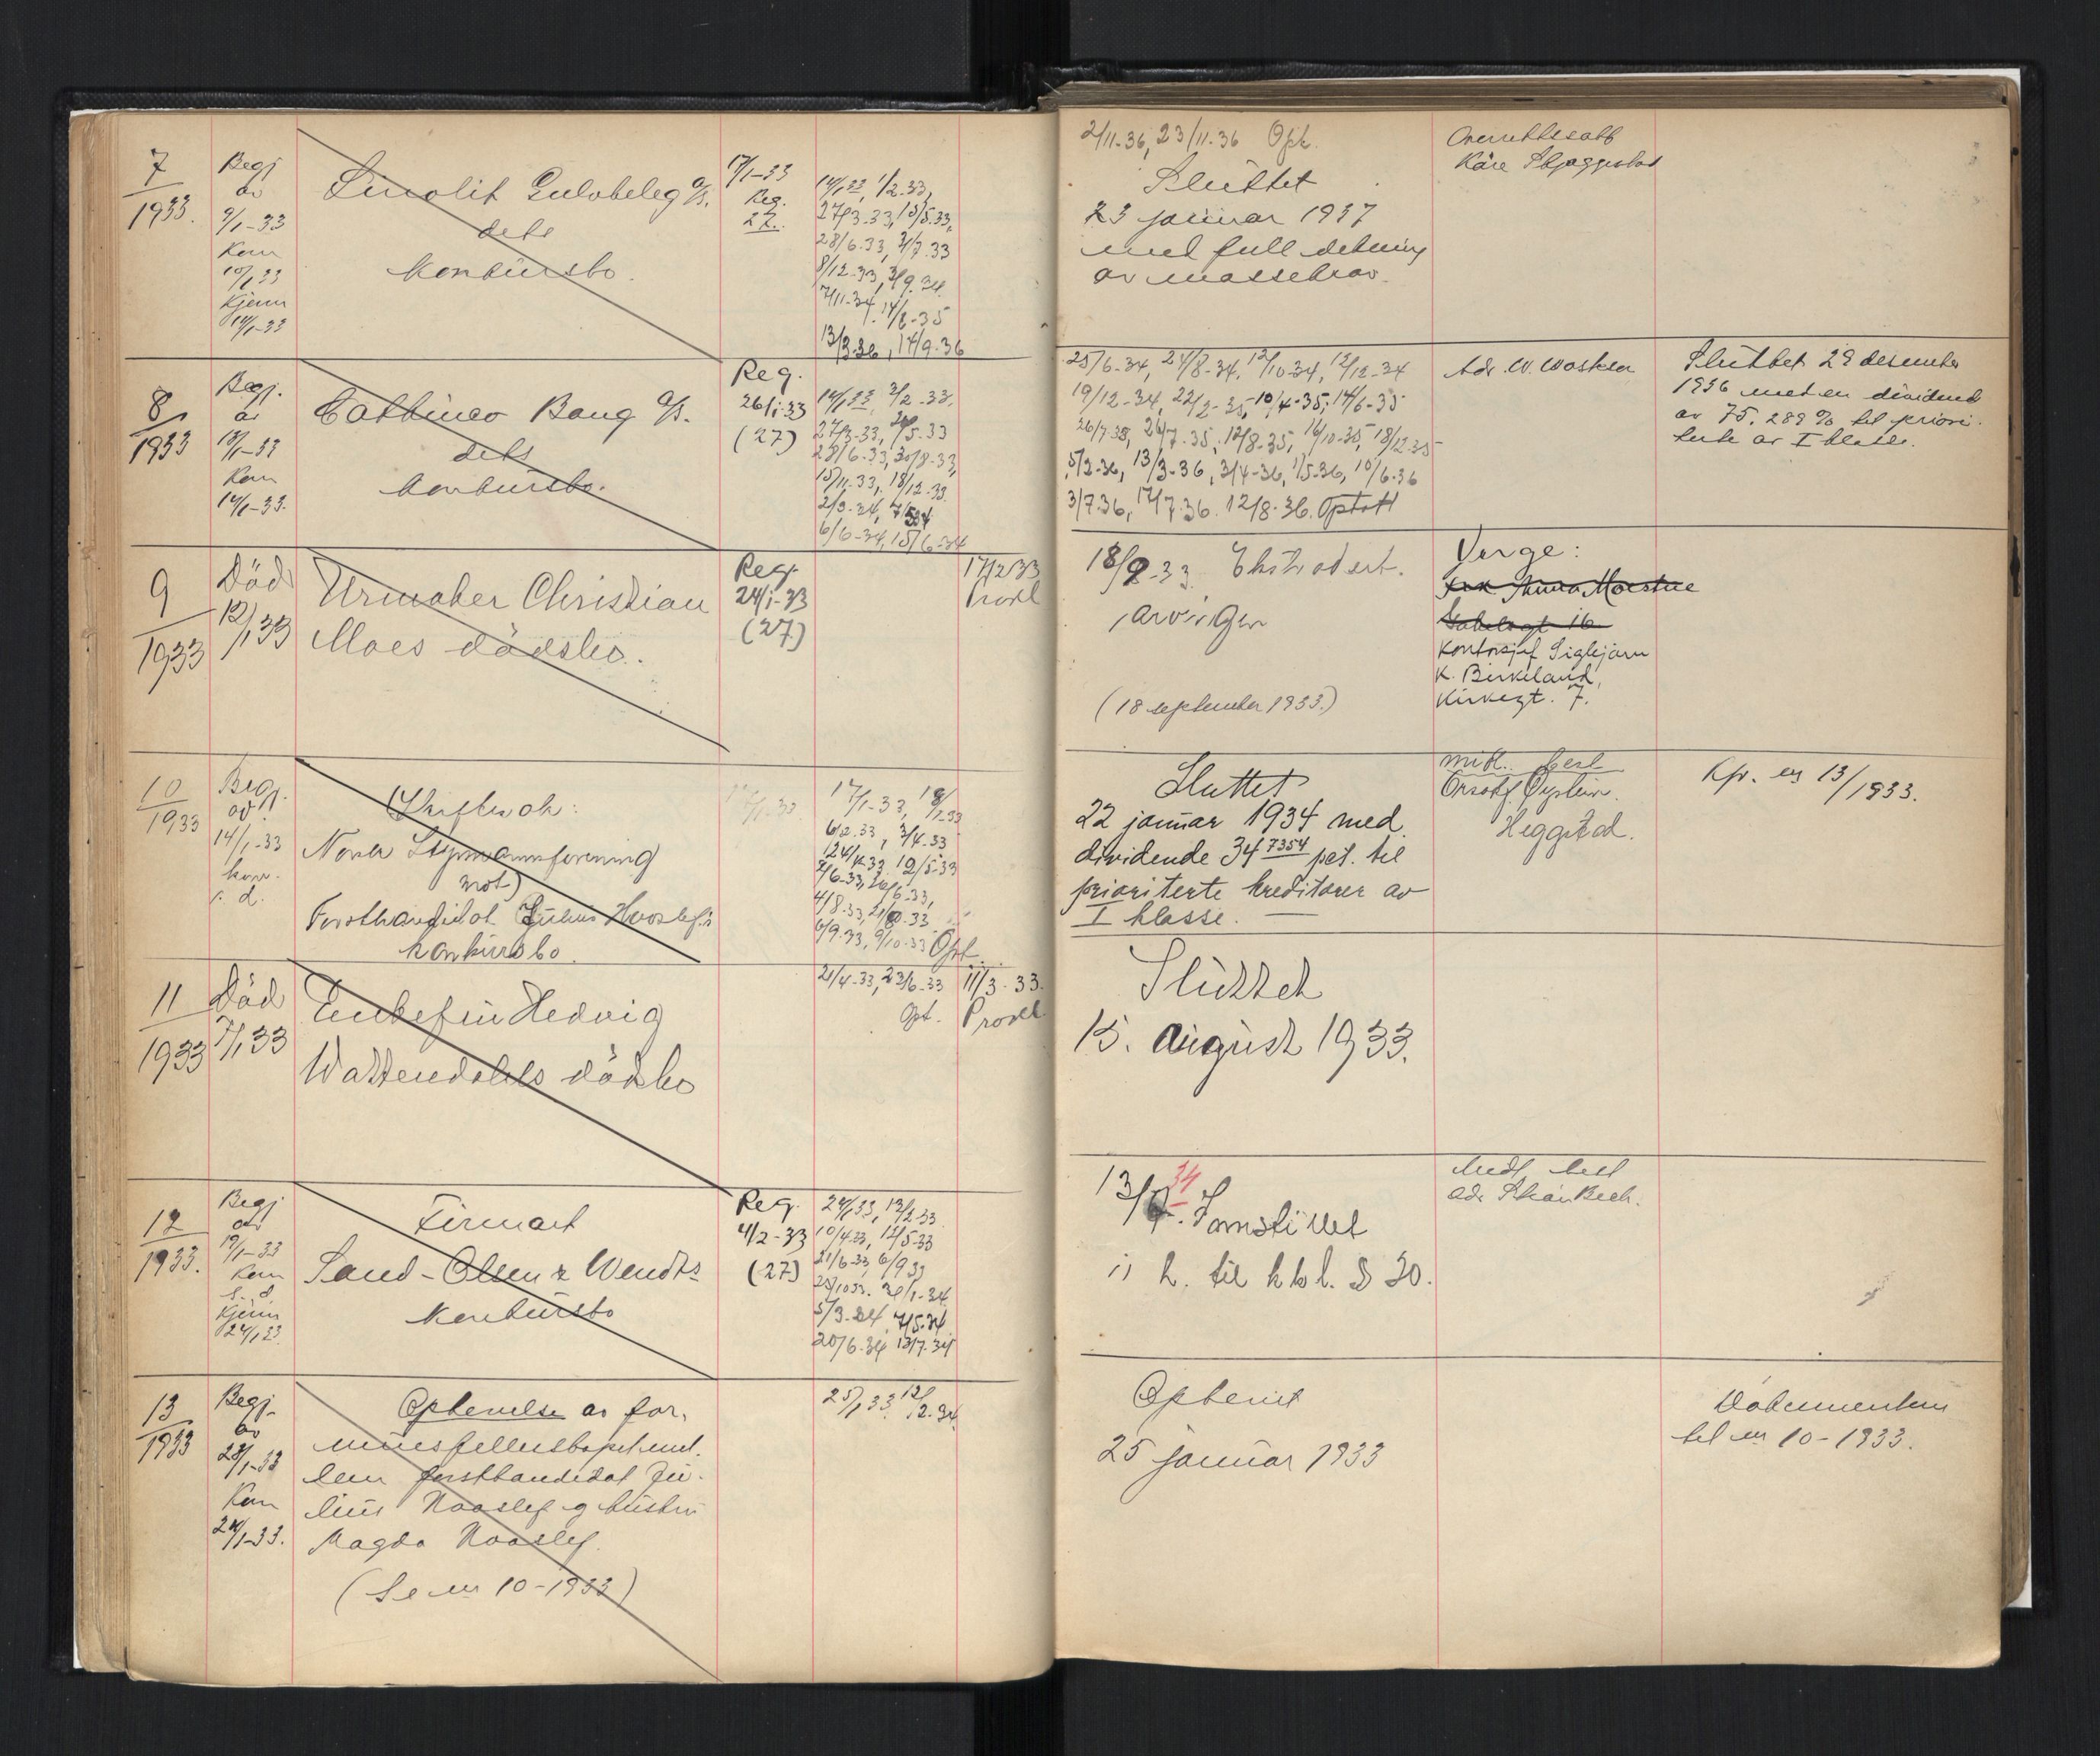 7
1933.
Begj
av
9/1-33
Kom
10/1 33
Kjenn
14/1-33
Linolit Gulvbeleg A/S.
dets
konkursbo.
17/1-33
Reg.
27.
14/1 33, 1/2-33,
27/3-33, 15/5.33,
28/6.33, 3/7.33
8/12-33,
7/11-34,
13/3-36, 17/9-36
2/11-36, 23/11-36 Opt.
Sluttet
23 januar 1937
med full dekning
av massekrav.
Overrettssakf
Kåre Skjaggestad
8
1933
Begj.
av
13/1-33
Kom
14/1-33.
Bang A/S.
dets
konkursbo.
Reg.
26/1-33
(27)
14/1 33, 3/2-33.
27/3-33, 5.33
28/6-33, 30/8-33,
15/11-33, 18/12-33
2/3-34, 7/5 34
6/6-34, 15/6-34
25/6-34, 24/8-34, 12/10-34, 12/12-34
19/12-34, 22/2-35, 10/4-35, 14/6-35
26/7.35, 12/8-35, 16/10-35, 18/12-35
5/2-36, 13/3-36, 3/4-36, 1/5-36, 10/6-36
3/7.36, 17/7.36. 12/8.36. Optatt
Adv. W.
Sluttet 29 desember
1936 met en dividende
av 75.289 % til priori-
terte av I klasse.
9
1933
Död
12/1 33
Urmaker Christian
Moes dödsbo.
Reg.
24/1-33
(27)
17/2 33
Provl
18/9-33 Ekstradert.
arvinger
(18 september 1933.)
Verge:
Anna Moestue
16.
Kontorsjef Sigbjørn
K. Birkeland,
Kirkegt. 7.
10
1933
Begj.
av
14/1-33
kom.
s. d.
Skiftesak:
Norsk Styrmannsforening
mot
Forstkandidat Julius Haaslefs
konkursbo.
17/1-33,
6/2.33, 3/4-33
19/5-33
4/8.33,
6/9-33, 9/10-33 Opt.
Sluttet
22 januar 1934 med
dividende 34 7354 pct. til
prioriterte kreditorer av
I klasse.
midl. best
Orsakf. Øystein
Heggstad.
Kfr. nr 13/1933.
11
1933
Död
7/1 33
Enkefru Hedvig
Wattendahls dödsbo
21/4-33, 23/6-33
Opt.
11/3-33.
Provl
Sluttet
15. august 1933.
12
1933.
Begj
av
19/1-33
Kom
s. d.
Kjenn
24/1 33
Firmaet
Sand-Olsen & Wendts
konkursbo
Reg.
4/2-33
(27)
24/1 33, 13/2-33
10/4-33, 12/5-33
21/6-33, 6/9 33
5/3-34 7/5-34
20/6-34 13/7-34
13/7. 34 Innstillet
i h. til kkl. § 30.
Midl. best
adv.
13
1933
Begj.
av
23/1-33
Kom
24/1-33.
Ophevelse av for-
muesfellesskapet mel-
lem forstkandidat Ju-
lius Haaslef og hustru
Magda Haaslef.
(Se nr 10-1933)
25/1 33
Ophevet
25 januar 1933
Dokumentene
til nr 10-1933.